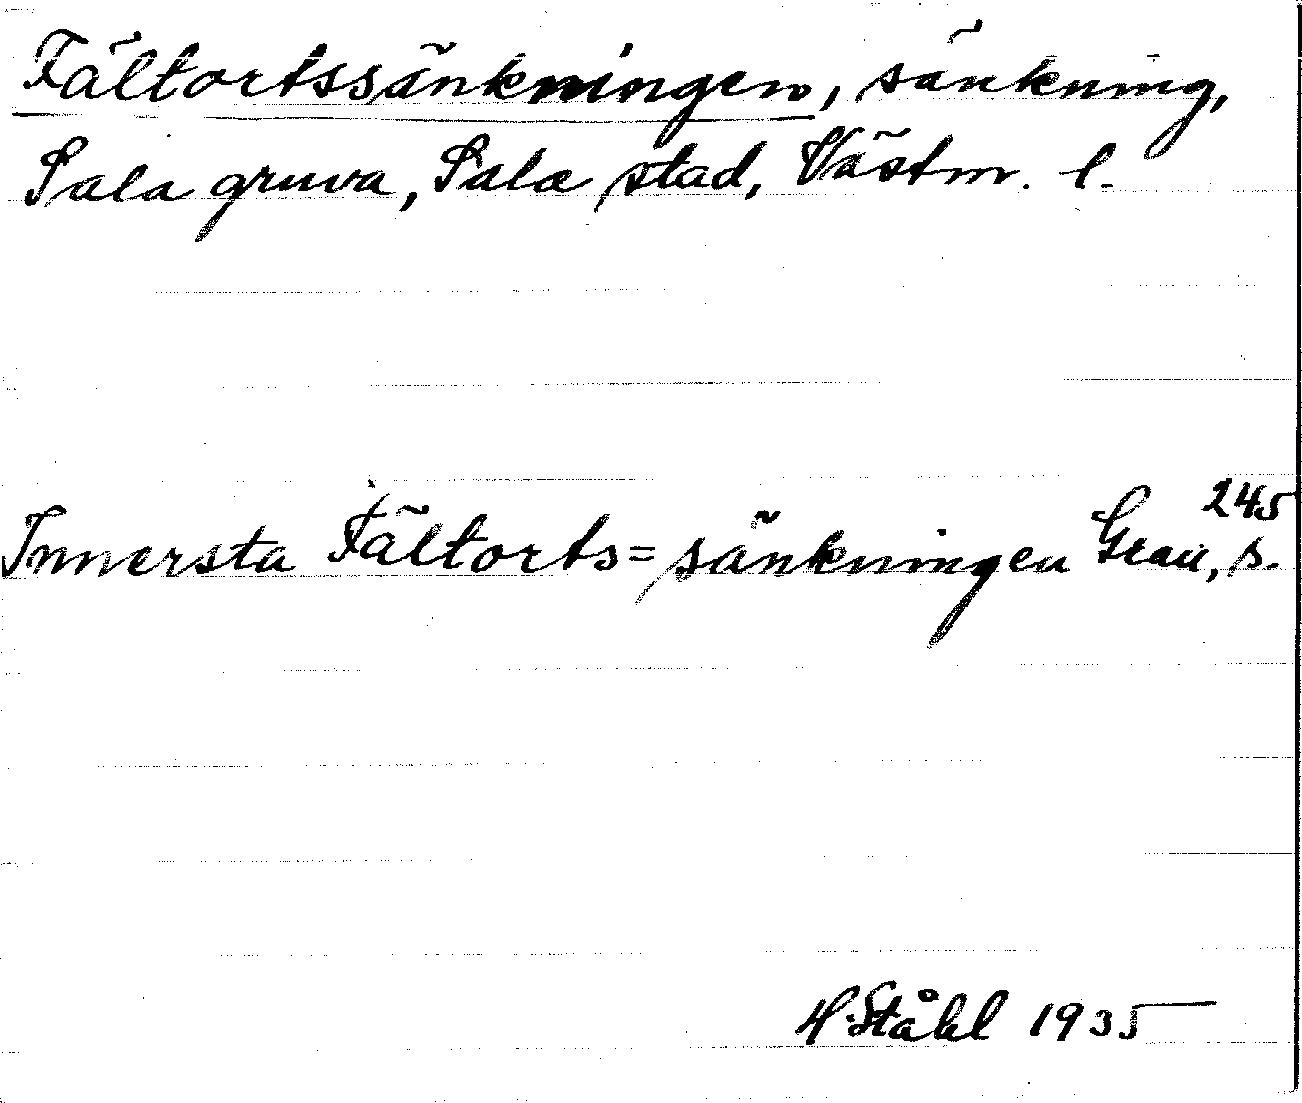 Fältortssänkningen, sänkning,
Sala gruva, Sala stad, Västm. l.
Innersta Fältorts=sänkningen Grau, s. 245
H. Ståhl 1935